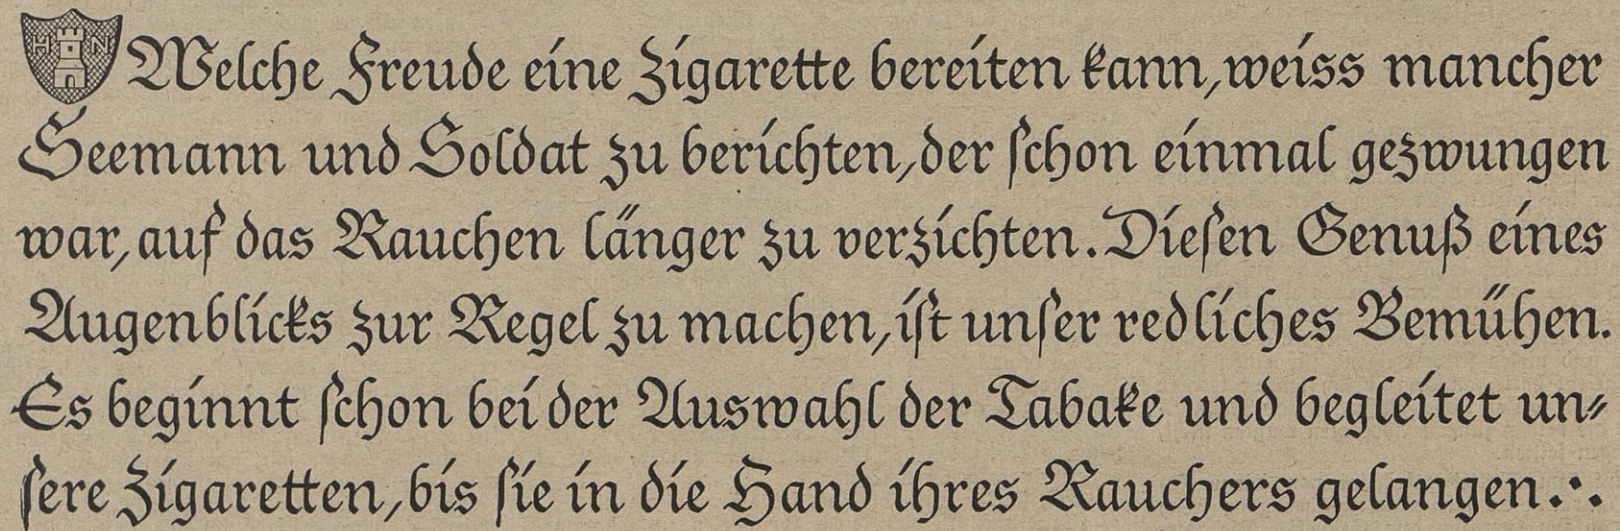 H N
Welche Freude eine Zigarette bereiten kann, weiss mancher
Seemann und Soldat zu berichten, der ſchon einmal gezwungen
war, auf das Rauchen länger zu verzichten. Dieſen Genuß eines
Augenblicks zur Regel zu machen, iſt unſer redliches Bemühen.
Es beginnt ſchon bei der Auswahl der Tabake und begleitet un⸗
ſere Zigaretten, bis ſie in die Hand ihres Rauchers gelangen.·.